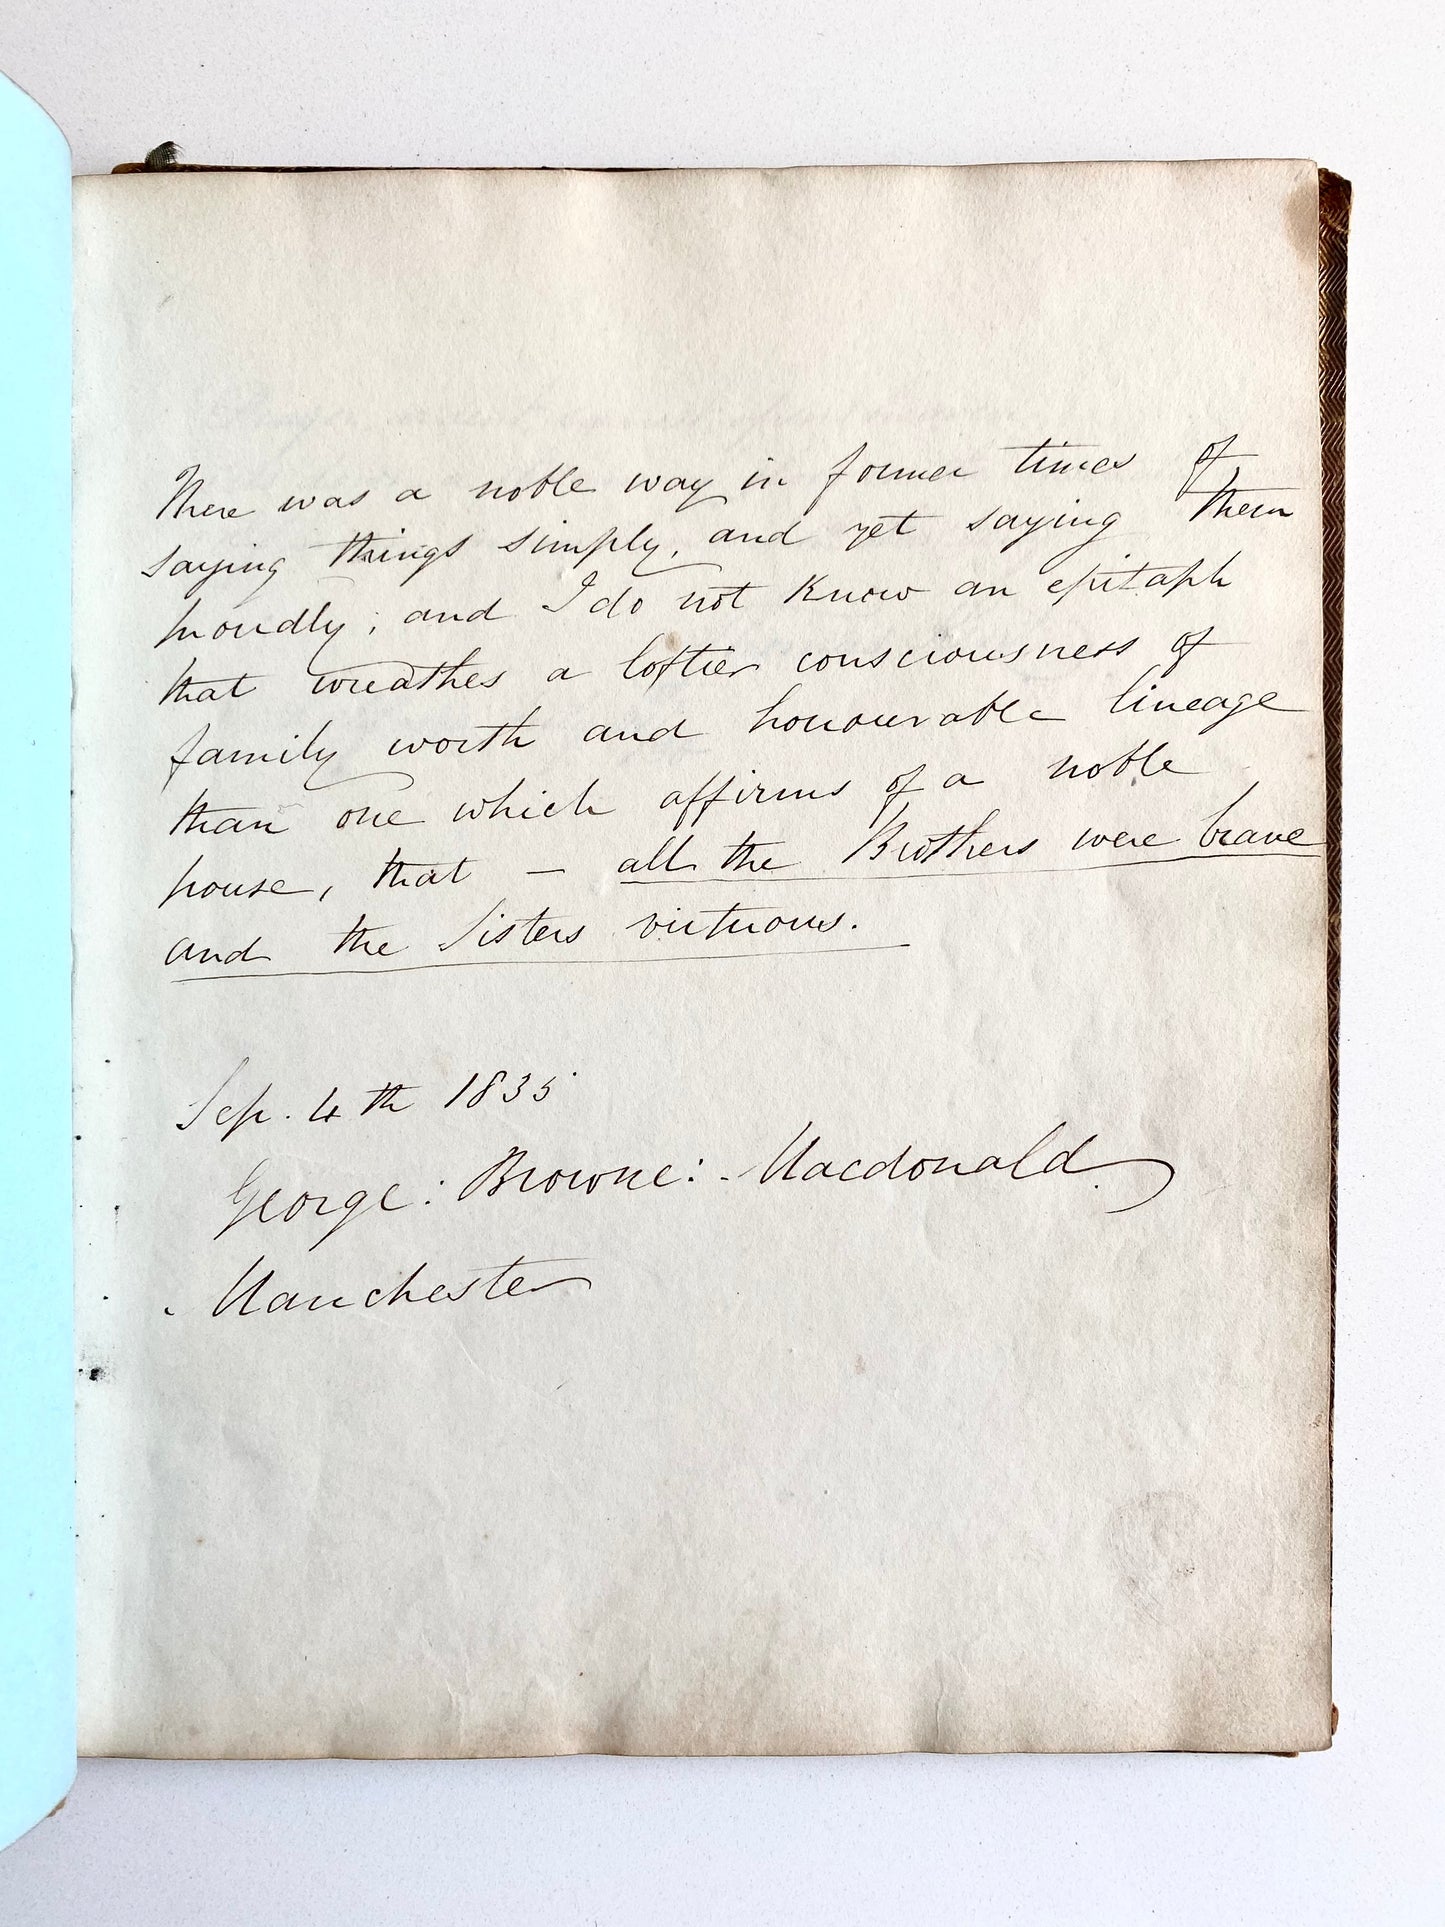 There was a noble way in former times of
saying things simply, and yet saying them
proudly; and I do not know an epitaph
that breathes a loftier consciousness of
family worth and honourable lineage
than one which affirms of a noble
house, that — all the Brothers were brave
and the Sisters virtuous.
Sep. 4th 1835
George: Browne: Macdonald
Manchester